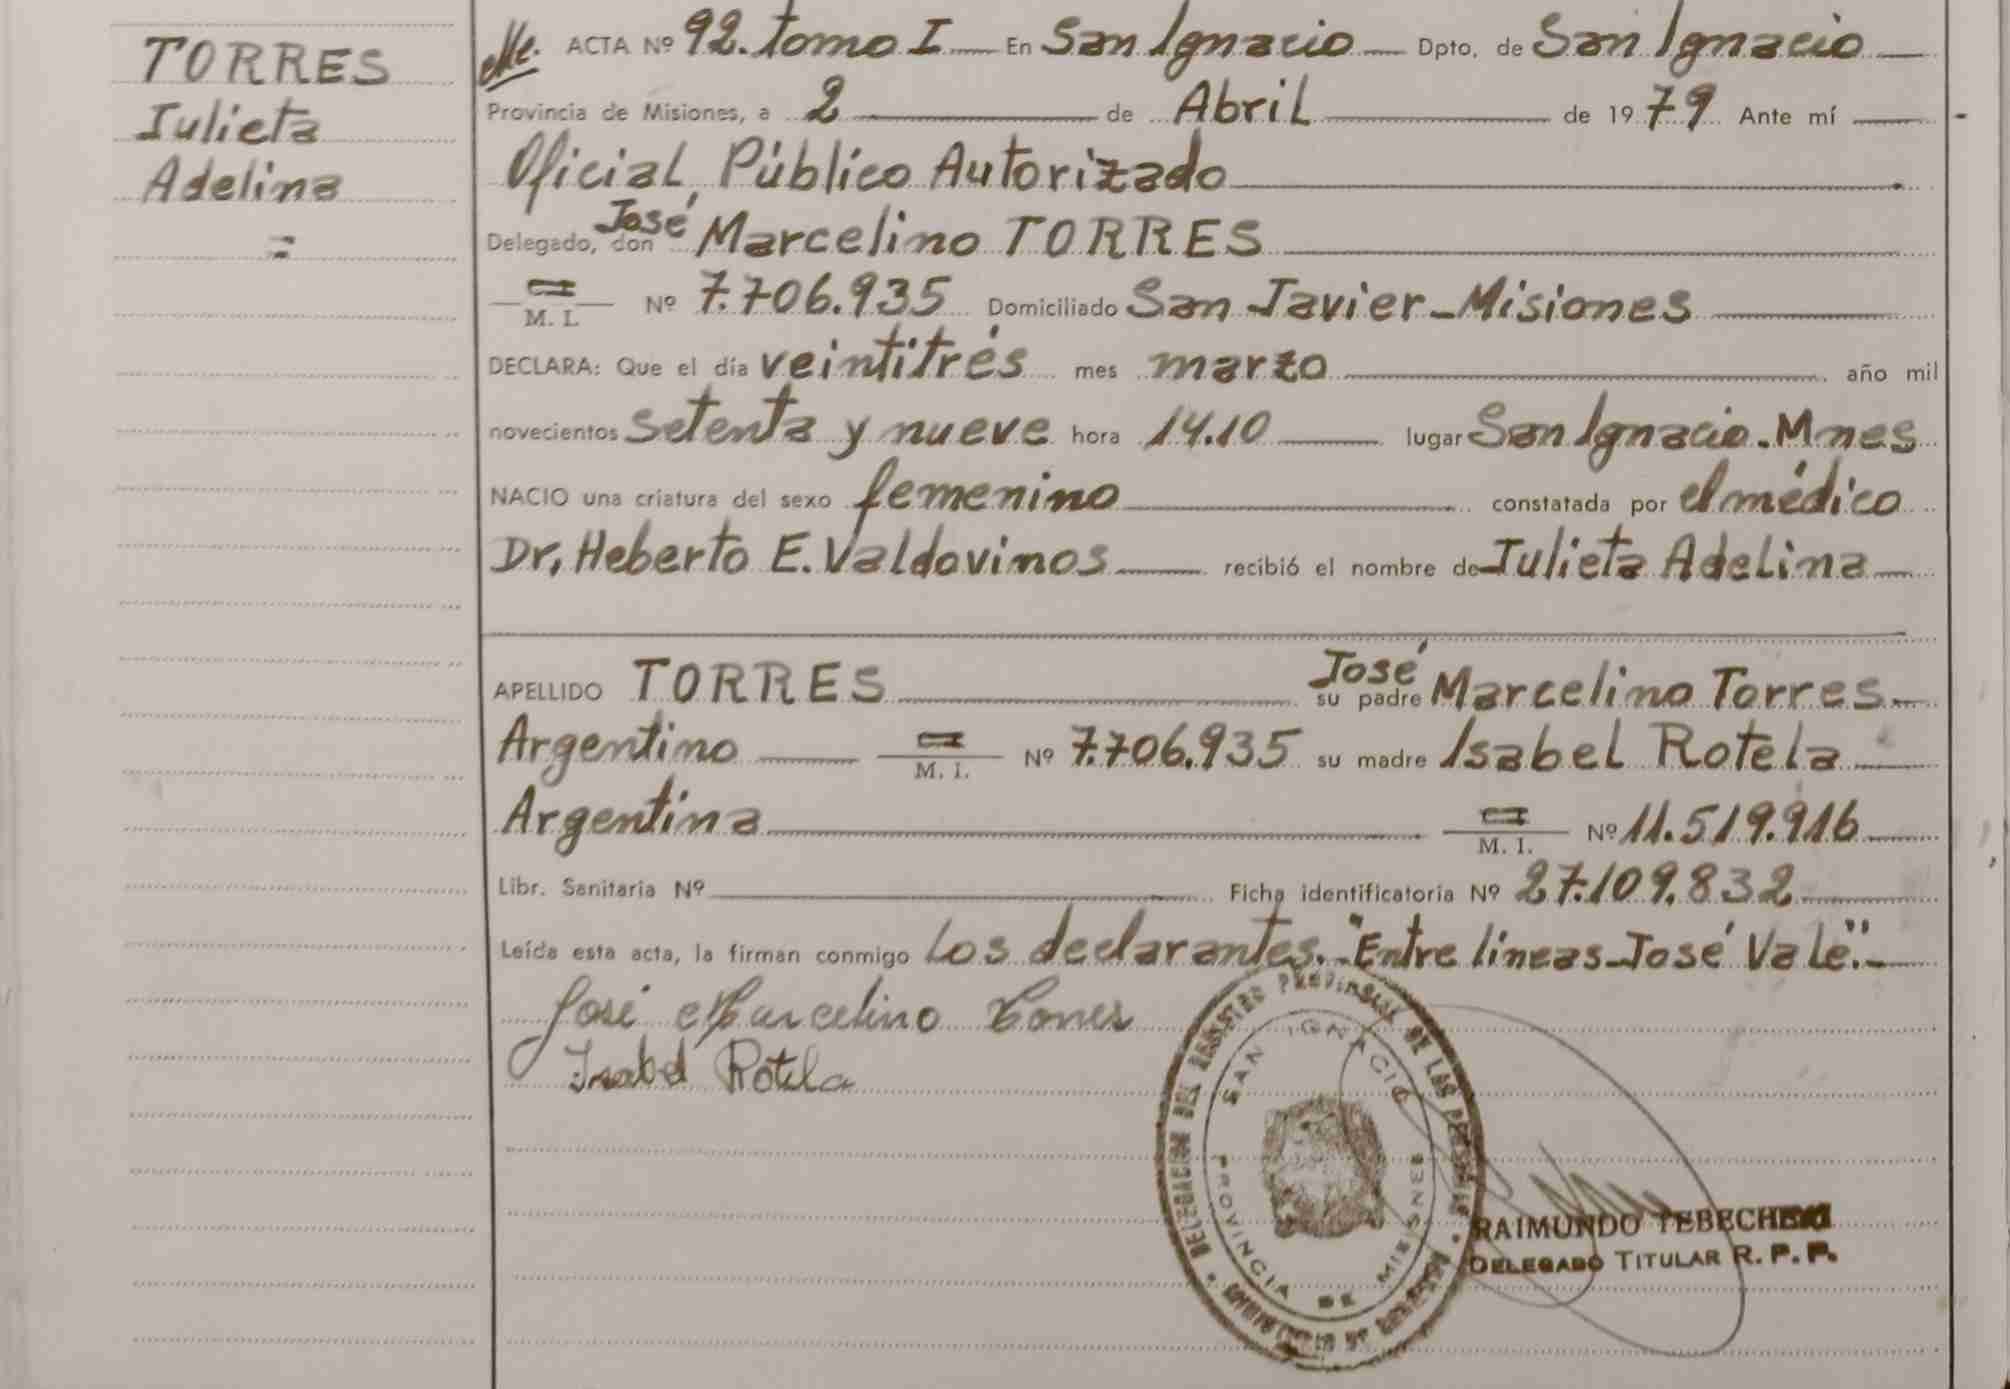 TORRES
Julieta
Adelina
=
ACTA Nº 92. tomo I En San Ignacio Dpto. de San Ignacio
Provincia de Misiones, a 2 de Abril de 1979 Ante mí
Oficial Público Autorizado
José
Delegado, don Marcelino TORRES
M. I. Nº 7.706.935 Domiciliado San Javier - Misiones
DECLARA: Que el día veintitrés mes marzo año mil
novecientos setenta y nueve hora 14.10 lugar San Ignacio. Mnes
NACIO una criatura del sexo femenino constatada por el médico
Dr. Heberto E. Valdovinos recibió el nombre de Julieta Adelina
José
APELLIDO TORRES su padre Marcelino Torres
Argentino M. I. Nº 7.706.935 su madre Isabel Rotela
Argentina M. I. Nº 11.519.916
Libr. Sanitaria Nº Ficha identificatoria Nº 27.109.832
Leída esta acta, la firman conmigo Los declarantes. "Entre líneas - José Vale".-
José Marcelino Torres
Isabel Rotela
DELEGACION DEL REGISTRO PROVINCIAL DE LAS PERSONAS
SAN IGNACIO
PROVINCIA DE MISIONES
RAIMUNDO
DELEGADO TITULAR R. P. P.